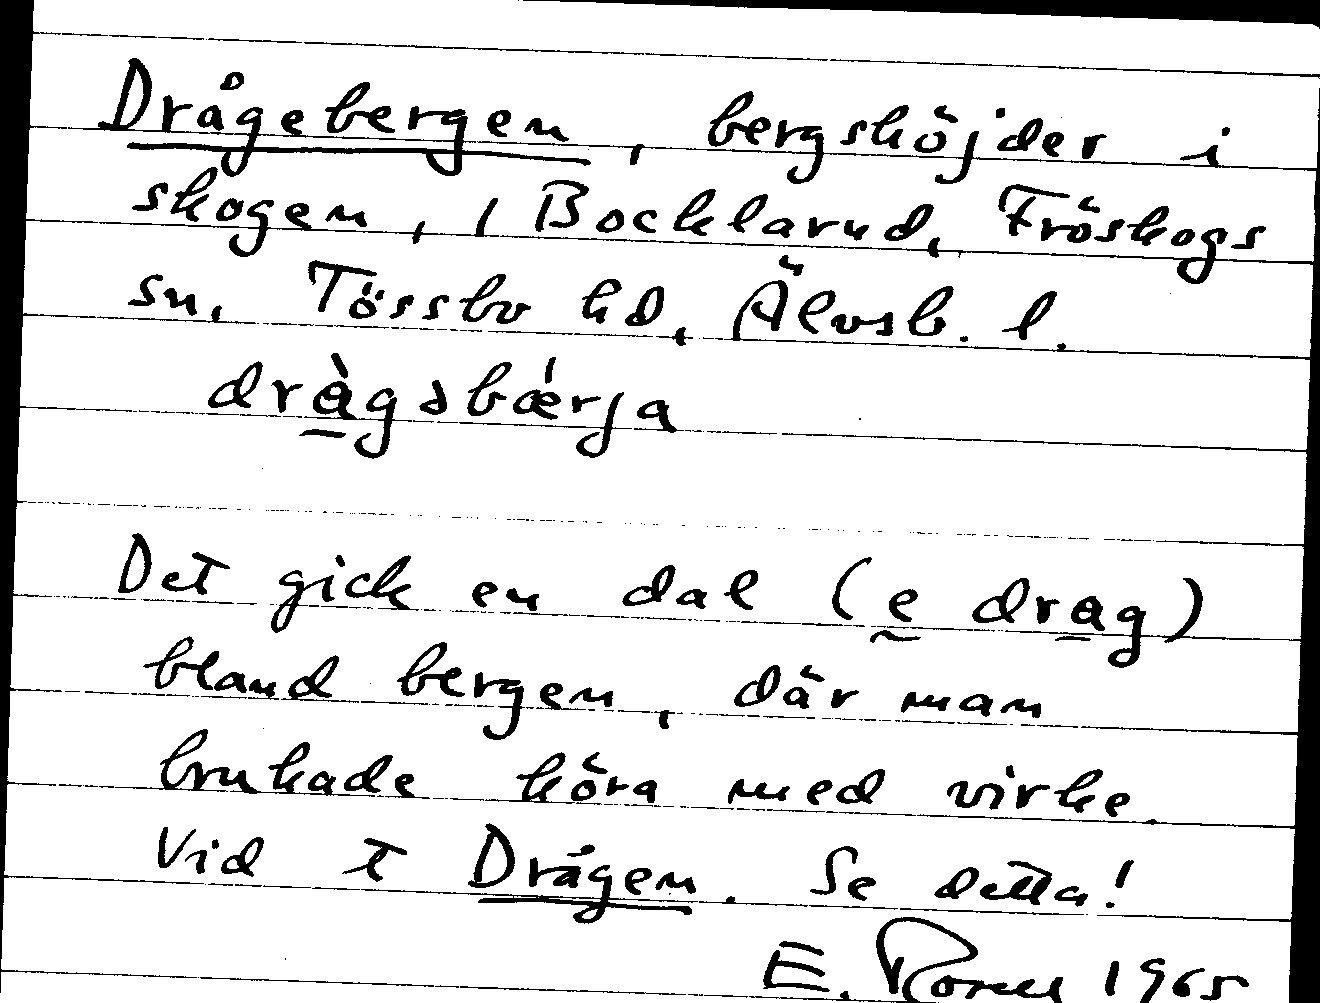 Drågebergen, bergshöjder i
skogen, 1 Bocklarud, Fröskogs
sn, Tössbo hd, Älvsb. l.
dràgəbǽrja
Det gick en dal (e drag)
bland bergen, där man
brukade köra med virke.
Vid t Drågen. Se detta!
E. 1965